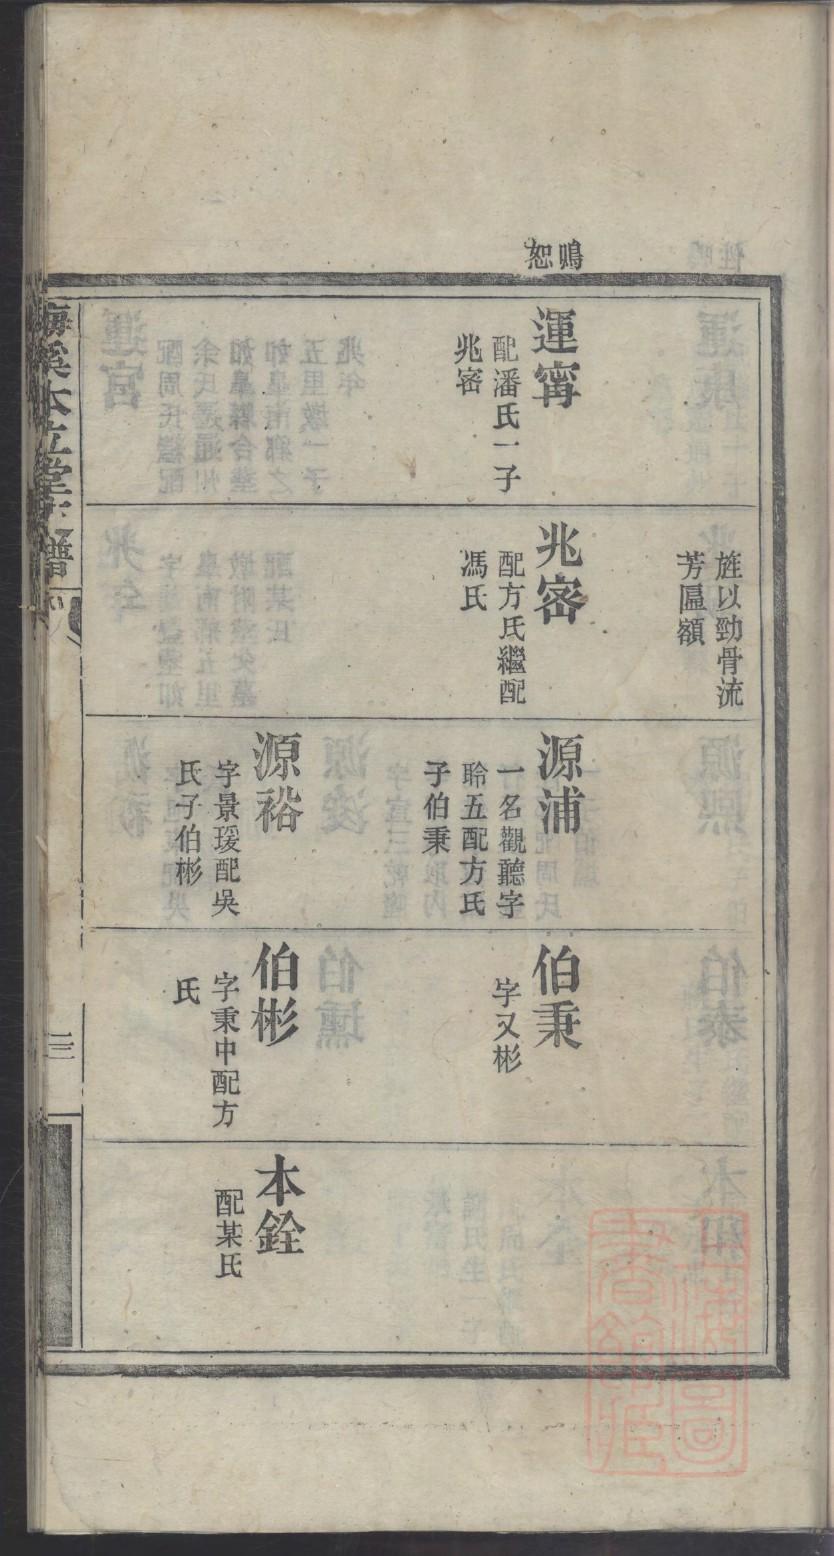 鳴
恕
運寗
配潘氏一子
兆密
旌以勁骨流
芳匾額
兆密
配方氏繼配
馮氏
源浦
一名觀聽字
聆五配方氏
子伯秉
源裕
字景瑗配吳
氏子伯彬
伯秉
字又彬
伯彬
字秉中配方
氏
本銓
配某氏
本立堂宗譜
三